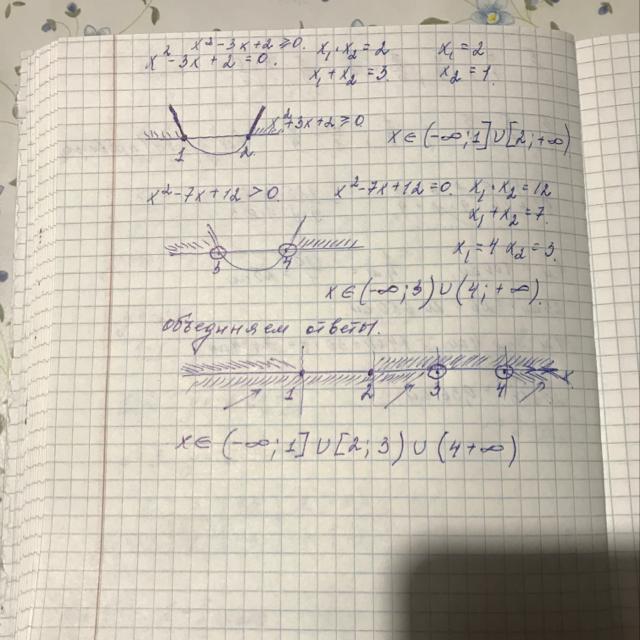 x²-3x+2≥0.
x²-3x+2=0. x₁·x₂=2 x₁=2
x₁+x₂=3 x₂=1.
x²+3x+2≥0
1 2
x∈(-∞;1]∪[2;+∞)
x²-7x+12>0. x²-7x+12=0. x₁·x₂=12
x₁+x₂=7.
3 4
x₁=4 x₂=3.
x∈(-∞;3)∪(4;+∞).
объединяем ответы.
1 2 3 4 x
x∈(-∞;1]∪[2;3)∪(4+∞)